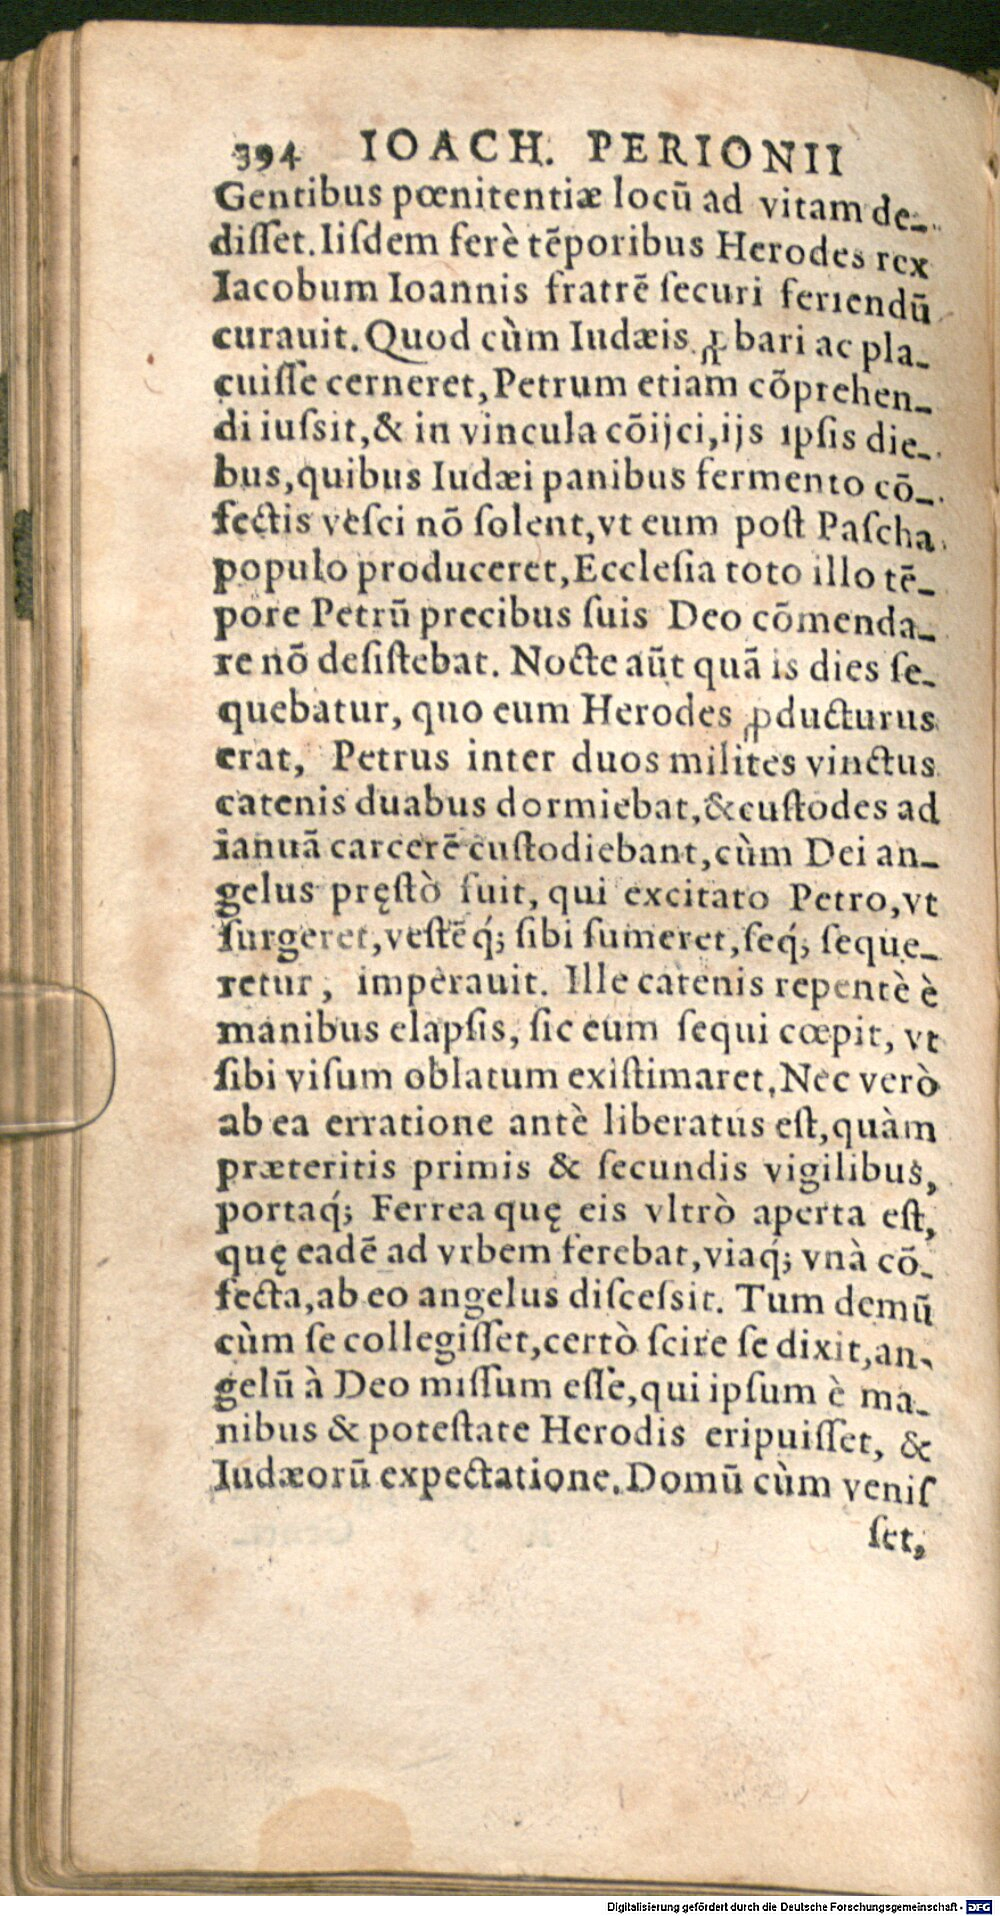 394 IOACH. PERIONII
Gentibus pœnitentiæ locũ ad vitam de-
diſſet. Iiſdem ferè tẽporibus Herodes rex
Iacobum Ioannis fratrẽ ſecuri feriendũ
curauit. Quod cùm Iudæis ꝓbari ac pla-
cuiſſe cerneret, Petrum etiam cõprehen-
di iuſsit, & in vincula cõijci, ijs ipſis die-
bus, quibus Iudæi panibus fermento cõ-
fectis veſci nõ ſolent, vt eum poſt Paſcha
populo produceret, Eccleſia toto illo tẽ-
pore Petrũ precibus ſuis Deo cõmenda-
re nõ deſiſtebat. Nocte aũt quã is dies ſe-
quebatur, quo eum Herodes ꝓducturus
erat, Petrus inter duos milites vinctus
catenis duabus dormiebat, & cuſtodes ad
ianuã carcerẽ cuſtodiebant, cùm Dei an-
gelus pręſtò fuit, qui excitato Petro, vt
ſurgeret, veſtẽq́; ſibi ſumeret, ſeq́; ſeque-
retur, imperauit. Ille catenis repentè è
manibus elapſis, ſic eum ſequi cœpit, vt
ſibi viſum oblatum exiſtimaret. Nec verò
ab ea erratione antè liberatus eſt, quàm
præteritis primis & ſecundis vigilibus,
portaq́; Ferrea quę eis vltrò aperta eſt,
quę eadẽ ad vrbem ferebat, viaq́; vnà cõ-
fecta, ab eo angelus diſceſsit. Tum demũ
cùm ſe collegiſſet, certò ſcire ſe dixit, an-
gelũ à Deo miſſum eſſe, qui ipſum è ma-
nibus & poteſtate Herodis eripuiſſet, &
Iudæorũ expectatione. Domũ cùm veniſ
ſet,
Digitalisierung gefördert durch die Deutsche Forschungsgemeinschaft - DFG